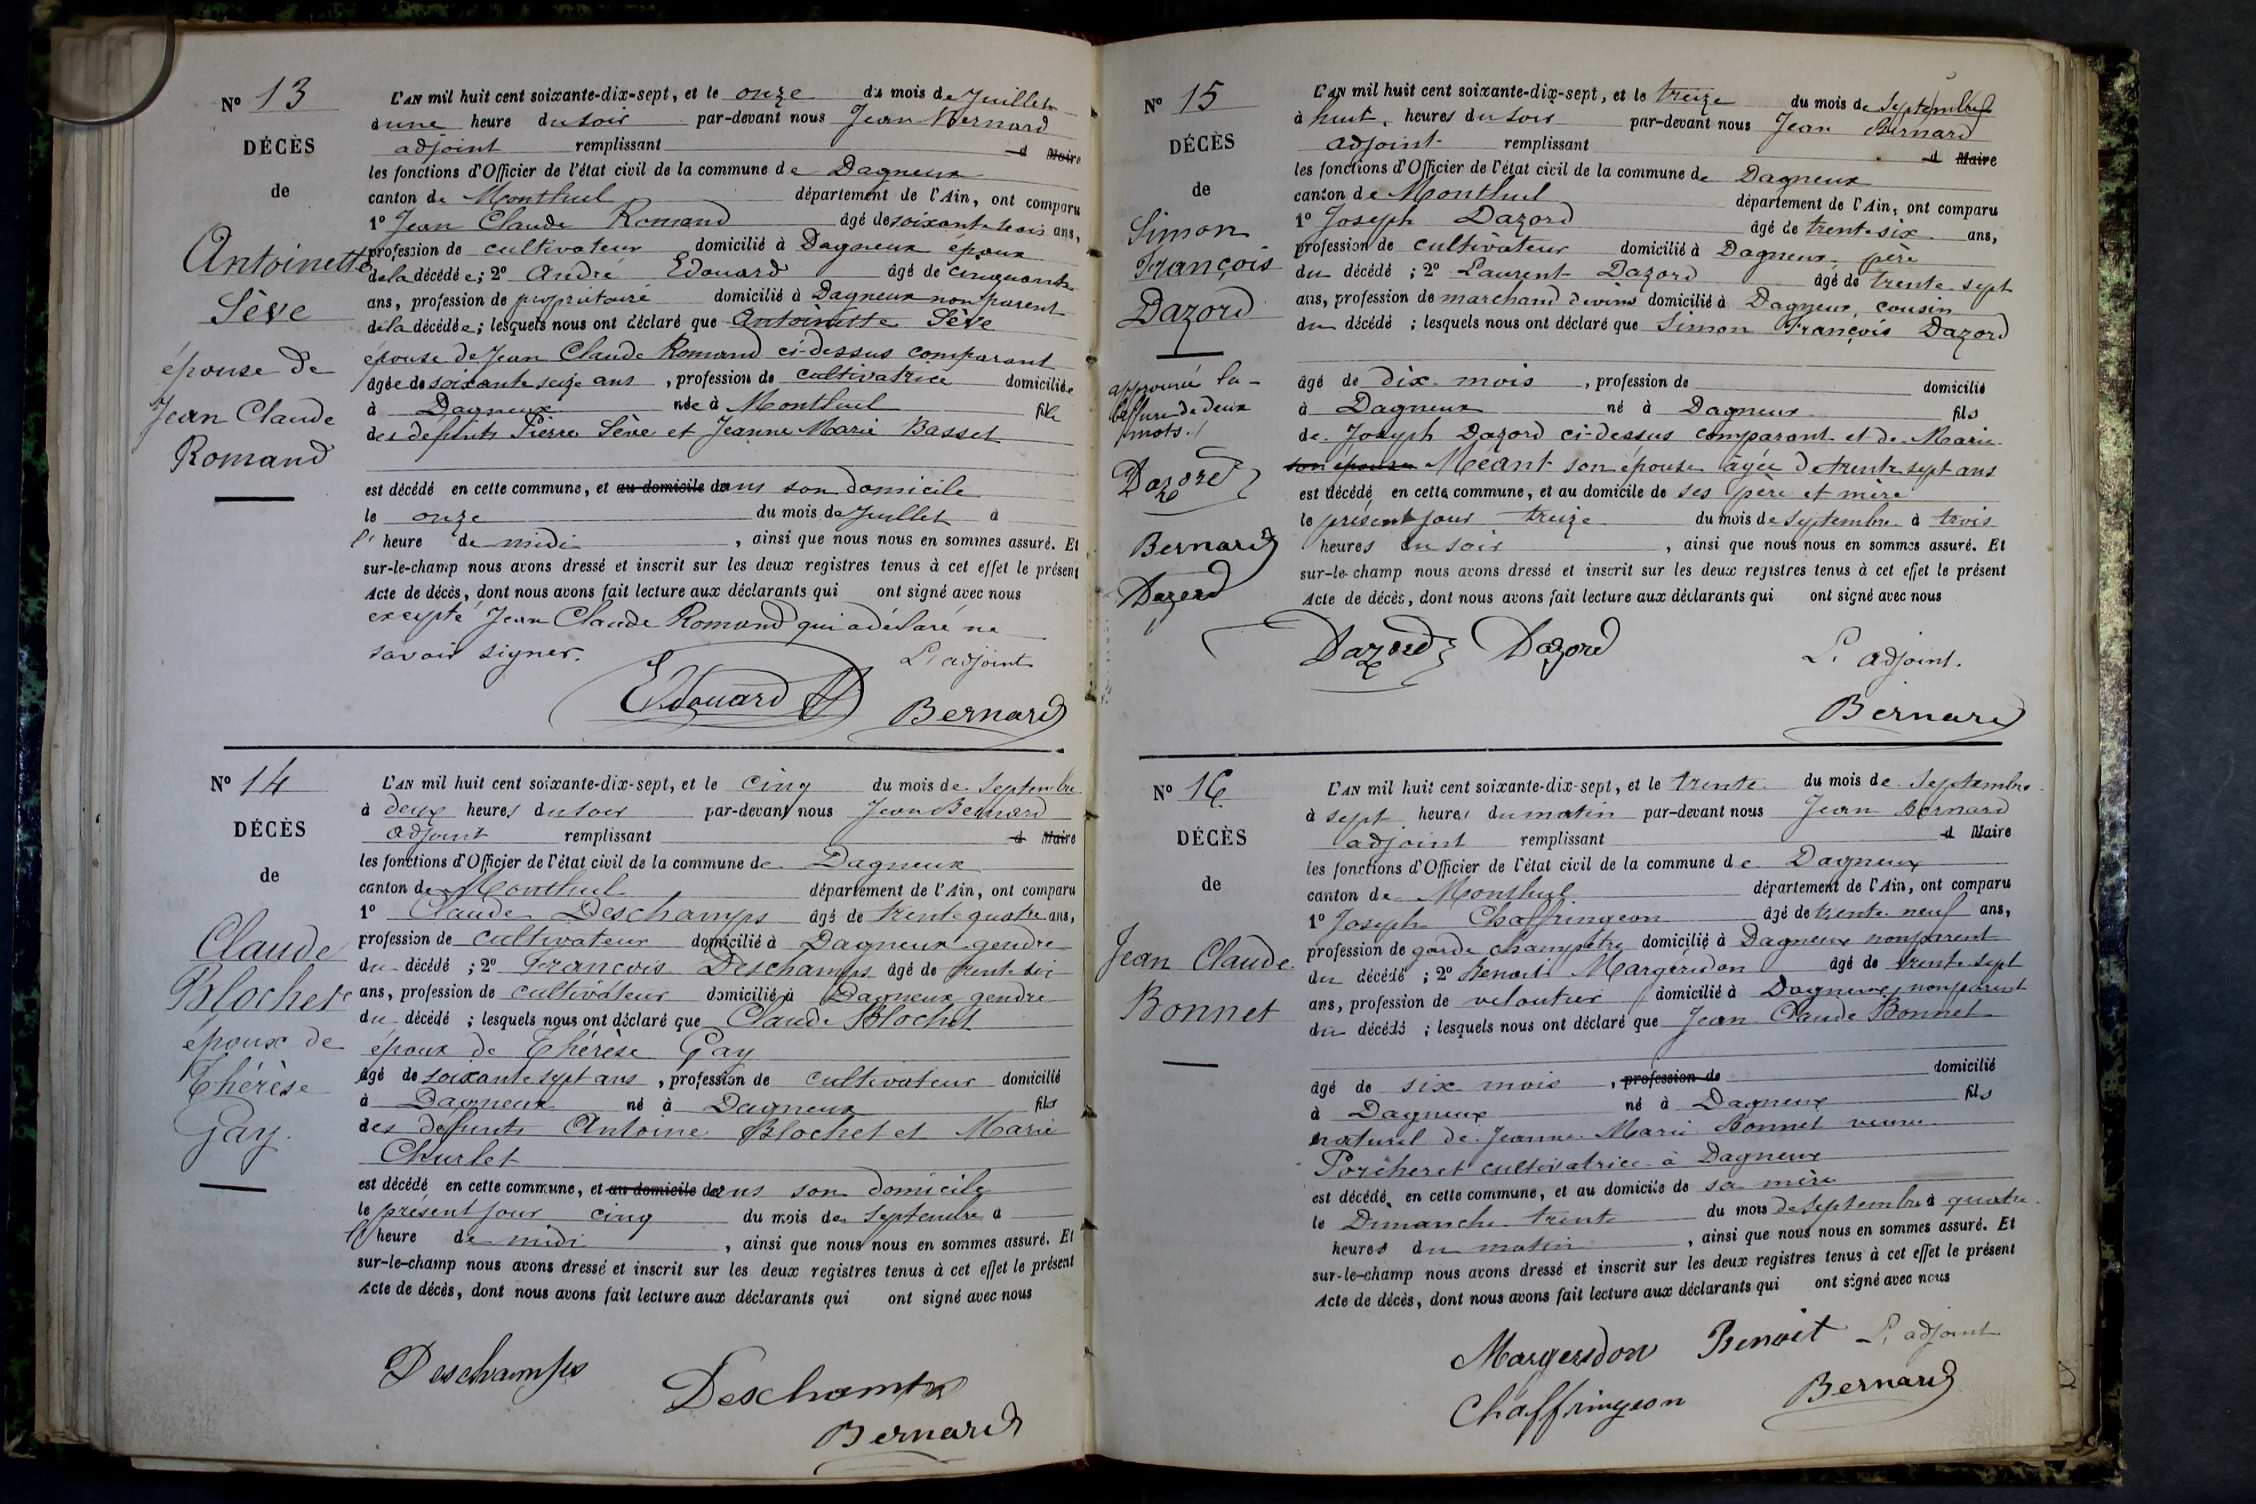 N° 13
DÉCÈS
de
Antoinette
Sève
épouse de
Jean Claude
Romand
L'AN mil huit cent soixante-dix-sept, et le onze du mois de Juillet
à une heure du soir par-devant nous Jean Bernard
adjoint remplissant d Maire
les fonctions d'Officier de l'état civil de la commune de Dagneux
canton de Montluel département de l'Ain, ont comparu
1° Jean Claude Romand âgé de soixante trois ans,
profession de cultivateur domicilié à Dagneux époux
de la décédée; 2° André Edouard âgé de cinquante
ans, profession de propriétaire domicilié à Dagneux non parent
de la décédée; lesquels nous ont déclaré que Antoinette Sève
épouse de Jean Claude Romand ci-dessus comparant
âgée de soixante seize ans, profession de cultivatrice domiciliée
à Dagneux née à Montluel fille
des défunts Pierre Sève et Jeanne Marie Basset
est décédé en cette commune, et au domicile dans son domicile
le onze du mois de Juillet à
l' heure de midi, ainsi que nous nous en sommes assuré. Et
sur-le-champ nous avons dressé et inscrit sur les deux registres tenus à cet effet le présent
Acte de décès, dont nous avons fait lecture aux déclarants qui ont signé avec nous
excepté Jean Claude Romand qui a déclaré ne
savoir signer.
L'adjoint
Edouard A
Bernard
N° 14
DÉCÈS
de
Claude
Blochet
époux de
Thérèse
Gay.
L'AN mil huit cent soixante-dix-sept, et le cinq du mois de Septembre
à deux heures du soir par-devant nous Jean Bernard
adjoint remplissant d Maire
les fonctions d'Officier de l'état civil de la commune de Dagneux
canton de Montluel département de l'Ain, ont comparu
1° Claude Deschamps âgé de trente quatre ans,
profession de cultivateur domicilié à Dagneux gendre
du décédé; 2° François Deschamps âgé de trente six
ans, profession de cultivateur domicilié à Dagneux gendre
du décédé; lesquels nous ont déclaré que Claude Blochet
époux de Thérèse Gay
âgé de soixante sept ans, profession de cultivateur domicilié
à Dagneux né à Dagneux fils
des défunts Antoine Blochet et Marie
Churlet
est décédé en cette commune, et au domicile dans son domicile
le présent jour cinq du mois de Septembre à
l' heure de midi, ainsi que nous nous en sommes assuré. Et
sur-le-champ nous avons dressé et inscrit sur les deux registres tenus à cet effet le présent
Acte de décès, dont nous avons fait lecture aux déclarants qui ont signé avec nous
Deschamps
Deschamps
Bernard
N° 15
DÉCÈS
de
Simon
François
Dazord
approuvé la
biffure de deux
mots.
Dazord
Bernard
Dazord
L'AN mil huit cent soixante-dix-sept, et le treize du mois de Septembre
à huit heures du soir par-devant nous Jean Bernard
adjoint remplissant d Maire
les fonctions d'Officier de l'état civil de la commune de Dagneux
canton de Montluel département de l'Ain, ont comparu
1° Joseph Dazord âgé de trente six ans,
profession de cultivateur domicilié à Dagneux père
du décédé; 2° Laurent Dazord âgé de trente sept
ans, profession de marchand de vins domicilié à Dagneux, cousin
du décédé; lesquels nous ont déclaré que Simon François Dazord
âgé de dix mois, profession de domicilié
à Dagneux né à Dagneux fils
de Joseph Dazord ci-dessus comparant et de Marie
son épouse Méant son épouse âgée de trente sept ans
est décédé en cette commune, et au domicile de ses père et mère
le présent jour treize du mois de Septembre à trois
heures du soir, ainsi que nous nous en sommes assuré. Et
sur-le-champ nous avons dressé et inscrit sur les deux registres tenus à cet effet le présent
Acte de décès, dont nous avons fait lecture aux déclarants qui ont signé avec nous
Dazord Dazord
L'adjoint.
Bernard
N° 16
DÉCÈS
de
Jean Claude
Bonnet
L'AN mil huit cent soixante-dix-sept, et le trente du mois de Septembre
à sept heures du matin par-devant nous Jean Bernard
adjoint remplissant d Maire
les fonctions d'Officier de l'état civil de la commune de Dagneux
canton de Montluel département de l'Ain, ont comparu
1° Joseph Chaffringeon âgé de trente neuf ans,
profession de garde champêtre domicilié à Dagneux non parent
du décédé; 2° Benoit Margéridon âgé de trente sept
ans, profession de veloutier domicilié à Dagneux, non parent
du décédé; lesquels nous ont déclaré que Jean Claude Bonnet
âgé de six mois, profession de domicilié
à Dagneux né à Dagneux fils
naturel de Jeanne Marie Bonnet veuve
Porcheret cultivatrice à Dagneux
est décédé en cette commune, et au domicile de sa mère
le Dimanche trente du mois de Septembre à quatre
heures du matin, ainsi que nous nous en sommes assuré. Et
sur-le-champ nous avons dressé et inscrit sur les deux registres tenus à cet effet le présent
Acte de décès, dont nous avons fait lecture aux déclarants qui ont signé avec nous
Margeridon Benoit L'adjoint
Chaffringeon Bernard